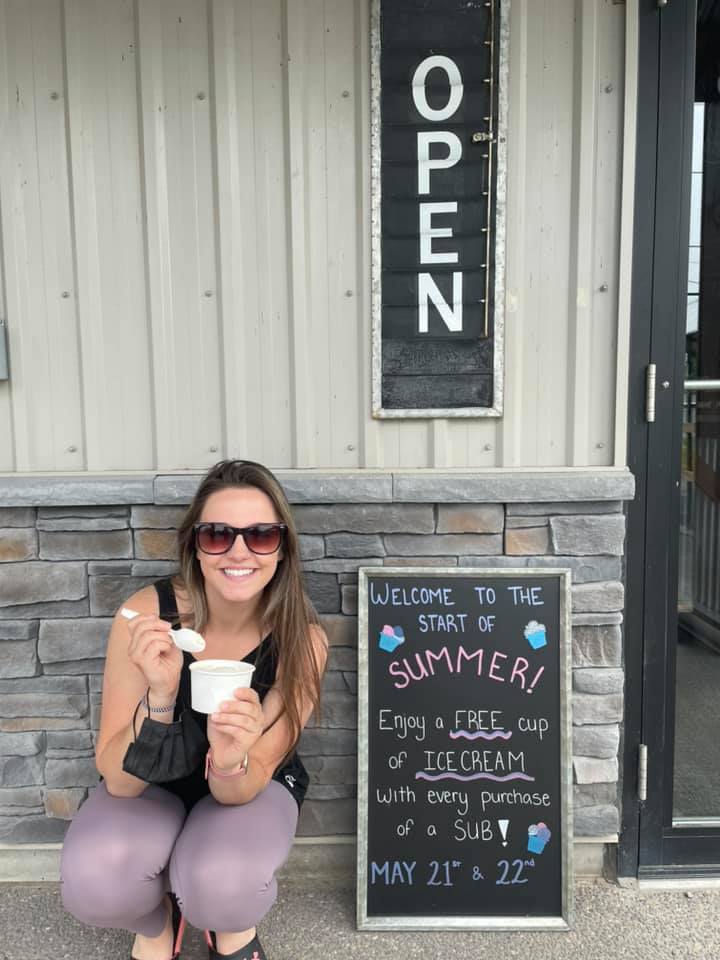 OPEN
WELCOME TO THE
START OF
SUMMER!
Enjoy a FREE cup
of ICECREAM
with every purchase
of a SUB!
MAY 21st & 22nd